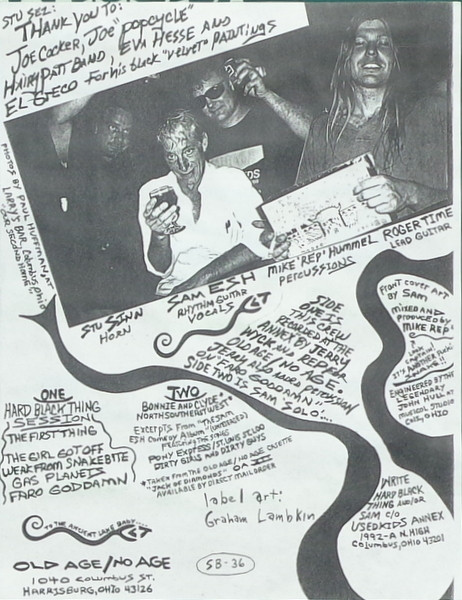 STU SEZ:
THANK YOU TO:
JOE COCKER, JOE "POPCYCLE"
HAIRY PATT BAND, EVA HESSE AND
EL GRECO For his black "velvet" PAINTINGS
PHOTOS BY PAUL HUFFMAN, AT
LARRY'S BAR, Columbus, Ohio
OUR SECOND HOME
STU SINN
HORN
SAM ESH
RHYTHM GUITAR
VOCALS
MIKE 'REP' HUMMEL
PERCUSSIONS
ROGER TIME
LEAD GUITAR
SIDE
ONE IS
THIS CREW
RECORDED AT THE
ANNEX BY JERRY
WICK AND REP FOR
OLD AGE/NO AGE-
JERRY ALD WORD PERMISSION
ON "FARO GODDAMN"
SIDE TWO IS SAM SOLO...
FRONT COVER ART
BY SAM
MIXED AND
PRODUCED BY
MIKE REP
ENGINEERED BY THE
LEGENDARY
JOHN HULL AT
MUSICOL STUDIO
COLS, OHIO
ONE
HARD BLACK THING
SESSION
THE FIRST THING
THE GIRL GOT OFF
WEAK FROM SNAKEBITE
GAS PLANETS
FARO GODDAMN
TWO
BONNIE AND CLYDE
NORTHSOUTHEASTWEST
Excerpts From "THE SAM
ESH Comedy Album" (UNRELEASED)
PRESENTING THE SONGS
PONY EXPRESS/ST. LOUIS SLOOO
DIRTY GIRLS AND DIRTY GUYS
TAKEN FROM THE OLD AGE/NO AGE CASSETTE
"JACK OF DIAMONDS" OA
AVAILABLE BY DIRECT MAIL ORDER
label art:
Graham Lambkin
WRITE
HARD BLACK
THING AND/OR
SAM C/O
USEDKIDS ANNEX
1992-A N. HIGH
Columbus, OHIO 43201
TO THE ANCIENT LAKE BABY...
OLD AGE/NO AGE
1040 COLUMBUS ST.
HARRISBURG, OHIO 43126
SB-36